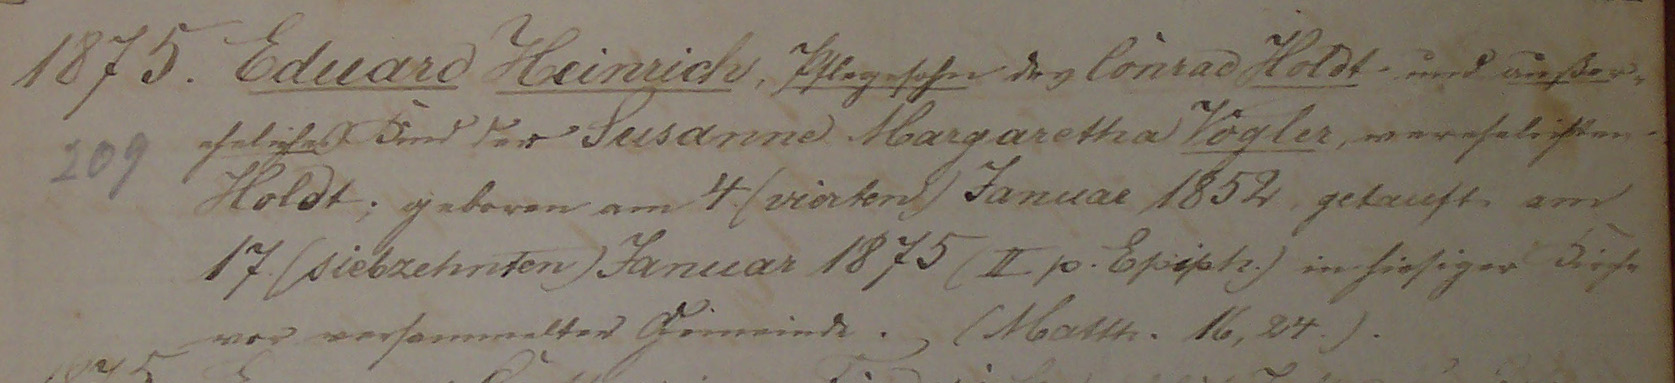 1875. Eduard Heinrich, Pflegesohn des Conrad Holdt und außer-
209 eheliches Kind der Susanne Margaretha Vogler, verehelichten
Holdt; geboren am 4. (vierten) Januar 1852, getauft am
17. (siebzehnten) Januar 1875 (II p. Epiph.) in hiesiger Kirche
vor versammelter Gemeinde. (Matth. 16, 24.).